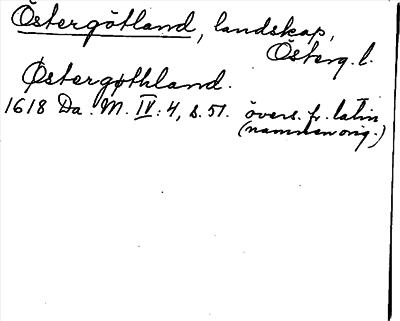 Östergötland, landskap,
Österg. l.
Østergøthland.
1618 Da. M. IV: 4, s. 51. övers. fr. latin
(namnen orig.)